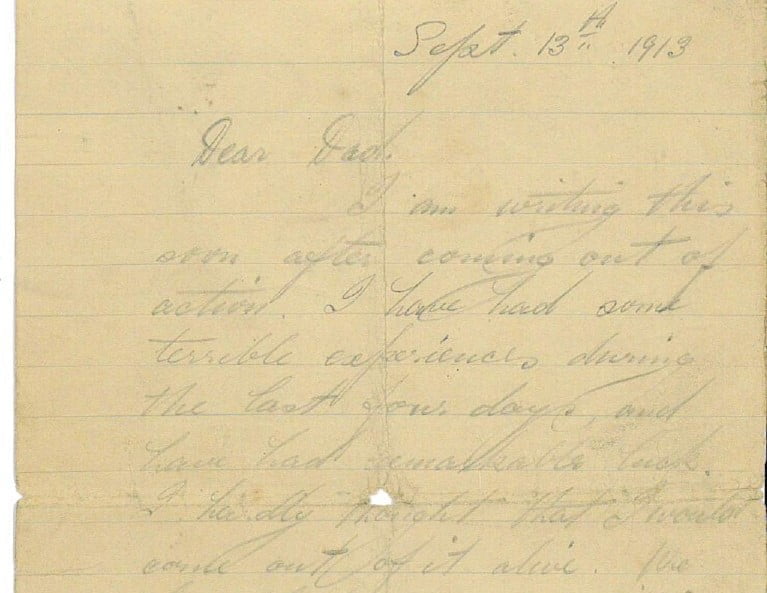 Sept. 13th 1913
Dear Dad.
I am writing this
soon after coming out of
action. I have had some
terrible experiences during
the last four days, and
have had remarkable luck.
I hardly thought that I would
come out of it alive. We